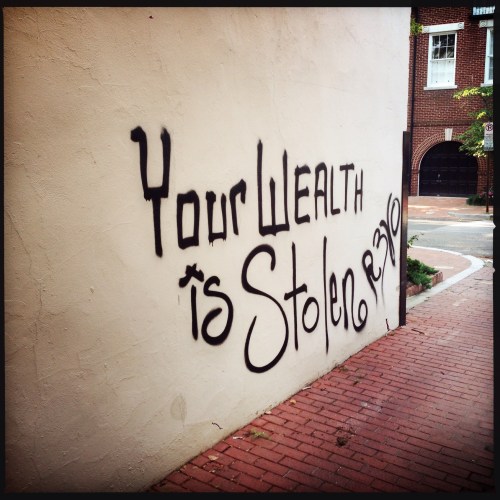 Your WEALTH
is Stolen
R3VO